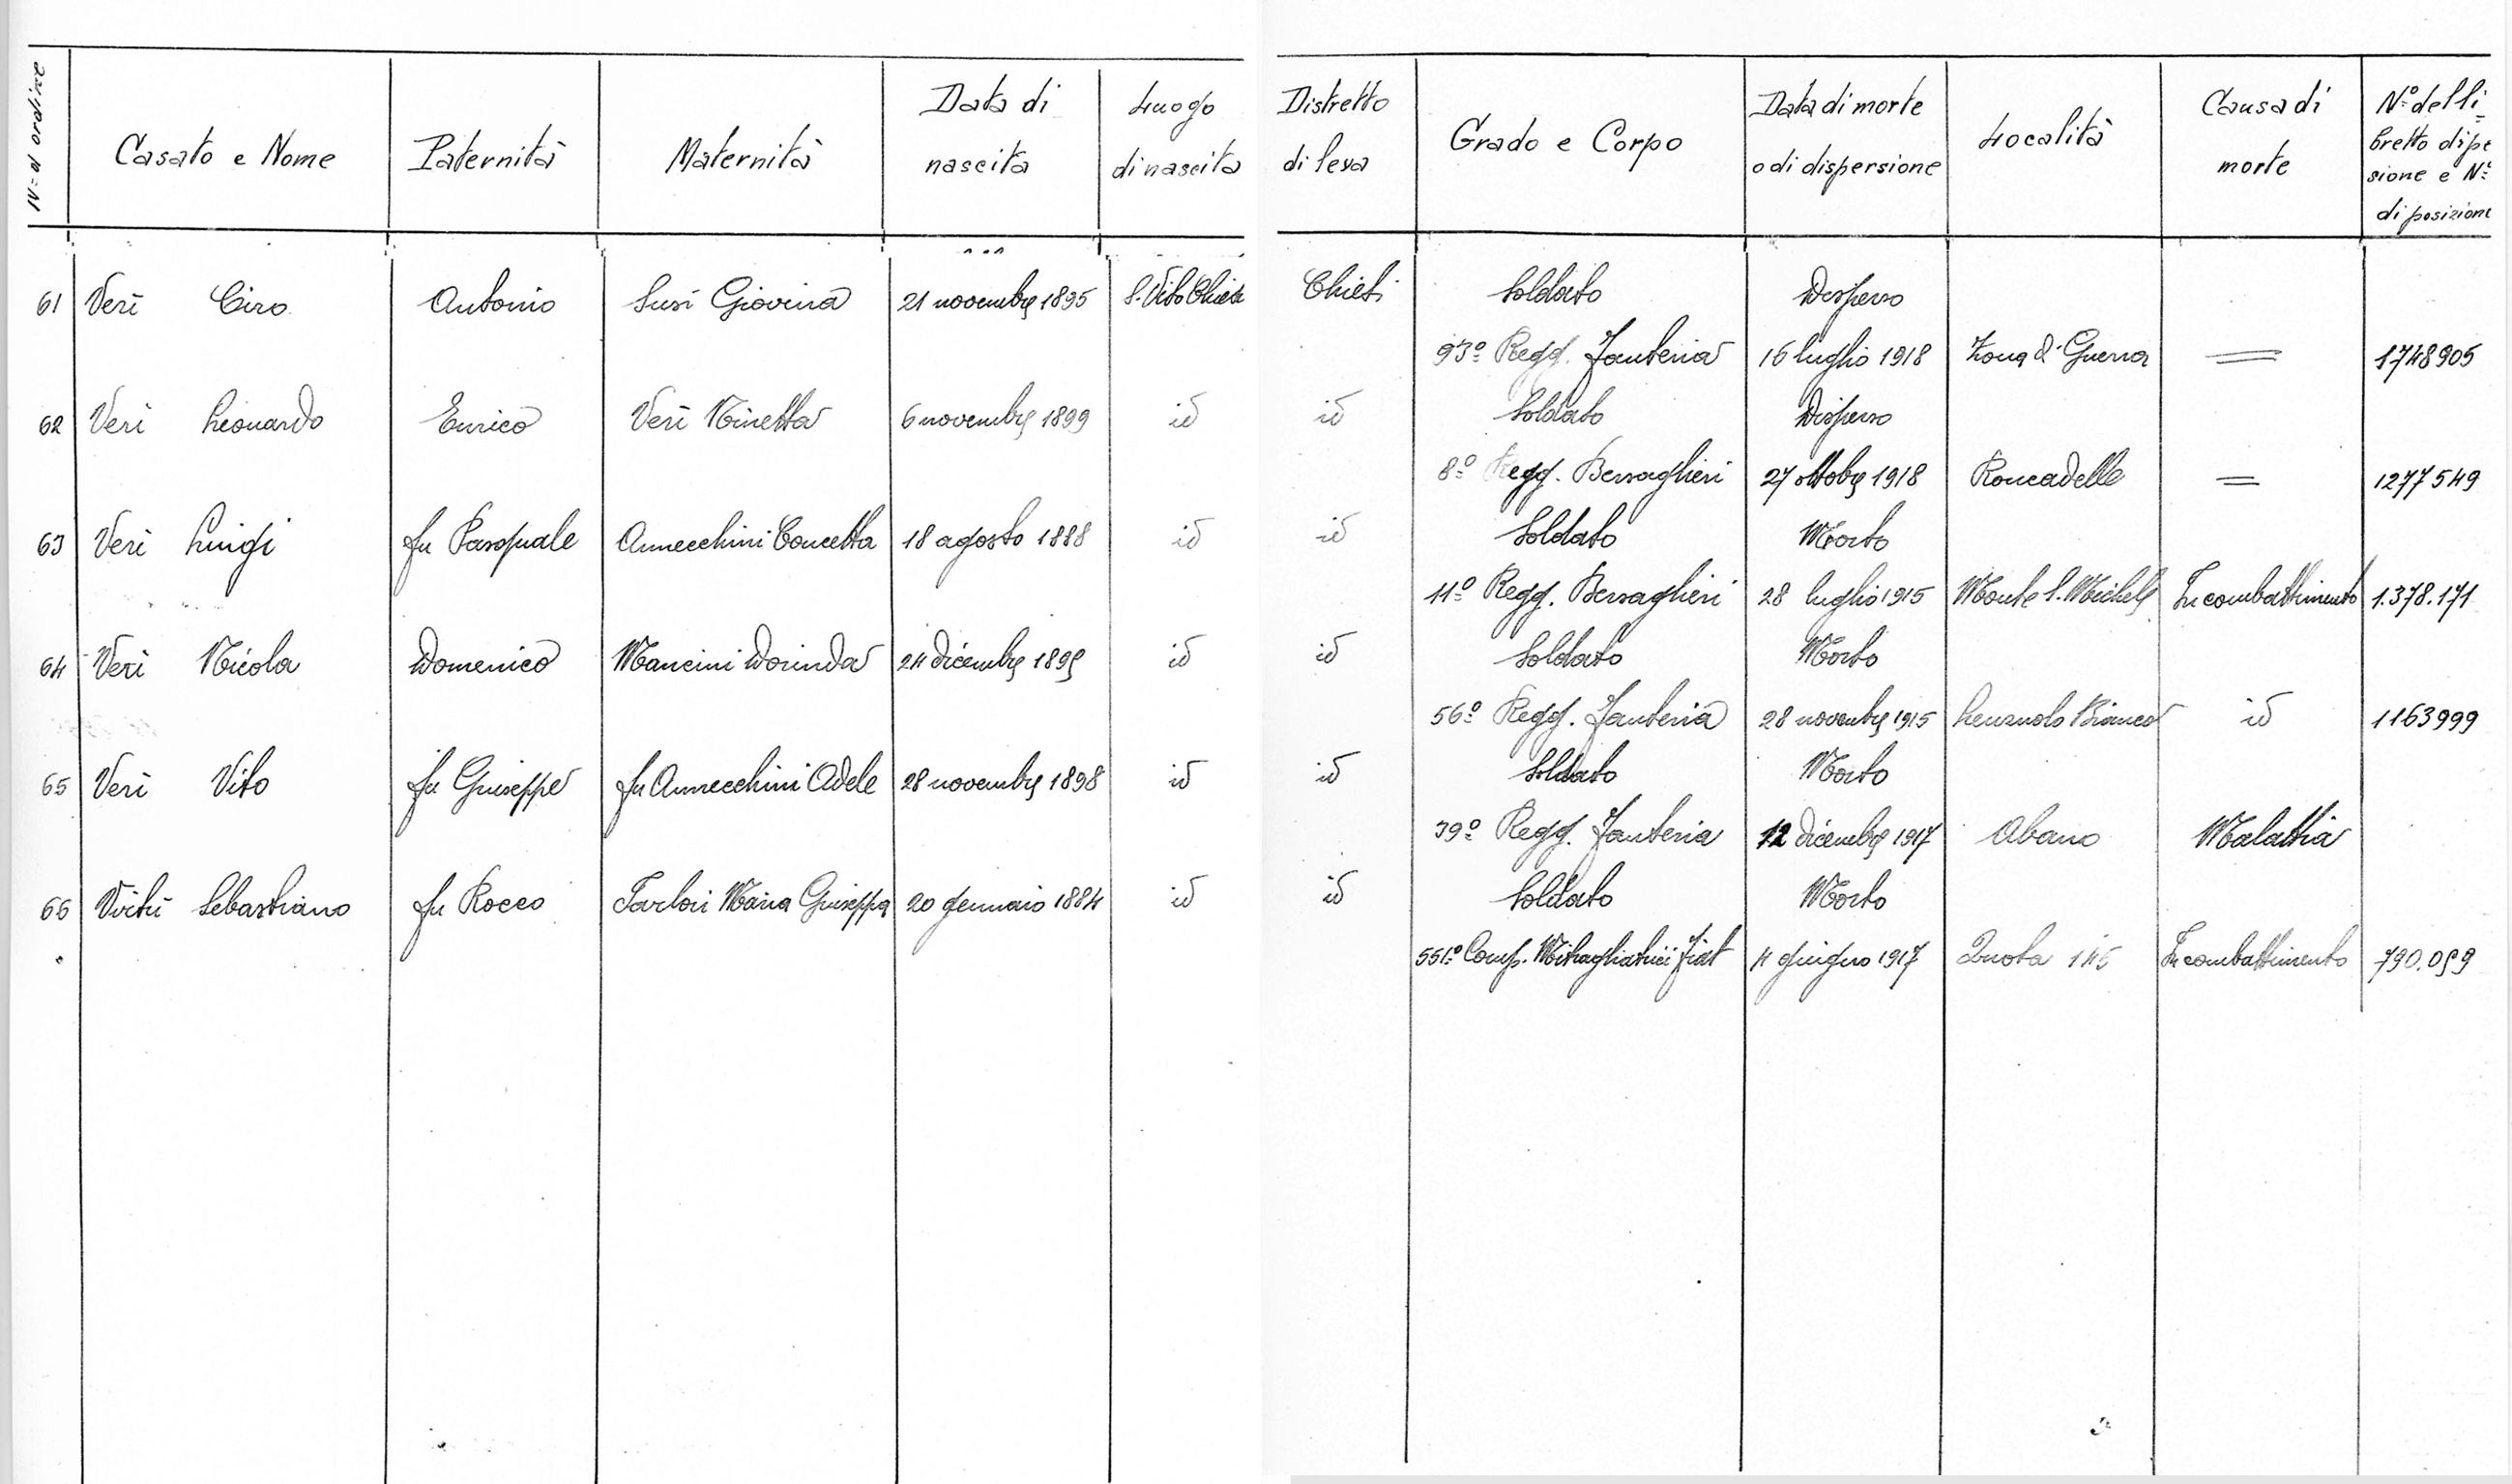 N.º d'ordine Casato e Nome Paternità Maternità Data di nascita Luogo di nascita Distretto di leva Grado e Corpo Data di morte o di dispersione Località Causa di morte N.º del li=bretto di pe sione e N.º di posizione
61 Verì Ciro Antonio Susi Giovina 21 novembre 1895 S. Vito Chieti Chieti Soldato Disperso
93º Regg. Fanteria 16 luglio 1918 Zona di Guerra = 1748905
62 Verì Leonardo Enrico Verì Ninetta 6 novembre 1899 id id Soldato Disperso
8º Regg. Bersaglieri 27 ottobre 1918 Roncadelle = 1277549
63 Verì Luigi fu Pasquale Annecchini Concetta 18 agosto 1888 id id Soldato Morto
11º Regg. Bersaglieri 28 luglio 1915 Monte S. Michele In combattimento 1.378.171
64 Verì Nicola Domenico Mancini Dorinda 24 dicembre 1895 id id Soldato Morto
56º Regg. Fanteria 28 novembre 1915 Bianco id 1163999
65 Verì Vito fu Giuseppe fu Annecchini Adele 28 novembre 1898 id id Soldato Morto
39º Regg. Fanteria 12 dicembre 1917 Abano Malattia
66 Virtù Sebastiano fu Rocco Maria Giuseppa 20 gennaio 1884 id id Soldato Morto
551º Comp. Mitragliatrici Fiat 4 giugno 1917 Quota 145 In combattimento 790.059